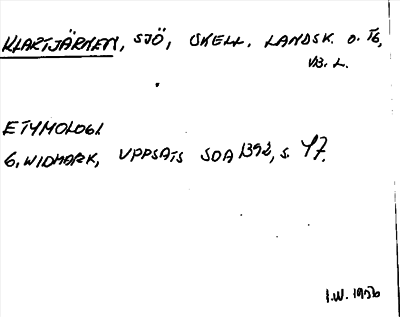 KLARTJÄRNEN, SJÖ, SKELL. LANDSK. O. TG,
VB. L.
ETYMOLOGI.
G. WIDMARK, UPPSATS SOA 1392, S. 47.
I.W. 1956